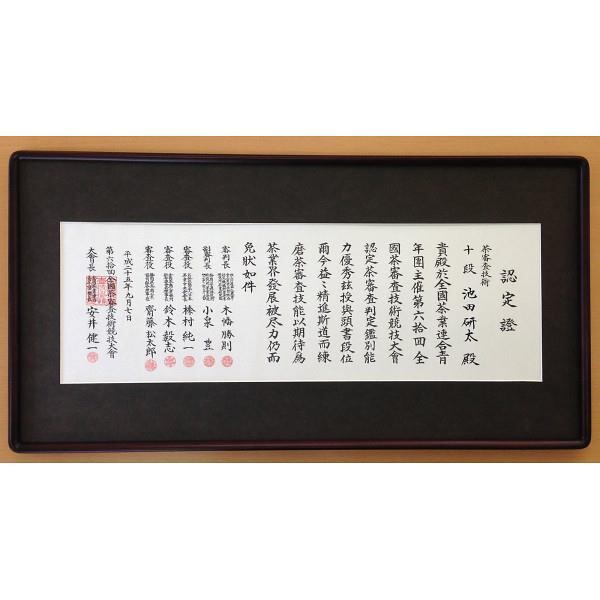 認定證
茶審査技術
十段 池田研太 殿
貴殿於全國茶業連合青
年團主催第六拾四回全
國茶審査技術競技大會
認定茶審査判定鑑別能
力優秀玆授與頭書段位
爾今益〻精進斯道而練
磨茶審査技能以期待為
茶業界發展被尽力仍而
免狀如件
審判長 木幡勝則
副審判長 小泉豊
審査役 榛村純一
審査役 鈴木毅志
審査役 齋藤松太郎
平成二十五年九月七日
第六拾回全國茶審査技術競技大會
大會長 安井健一